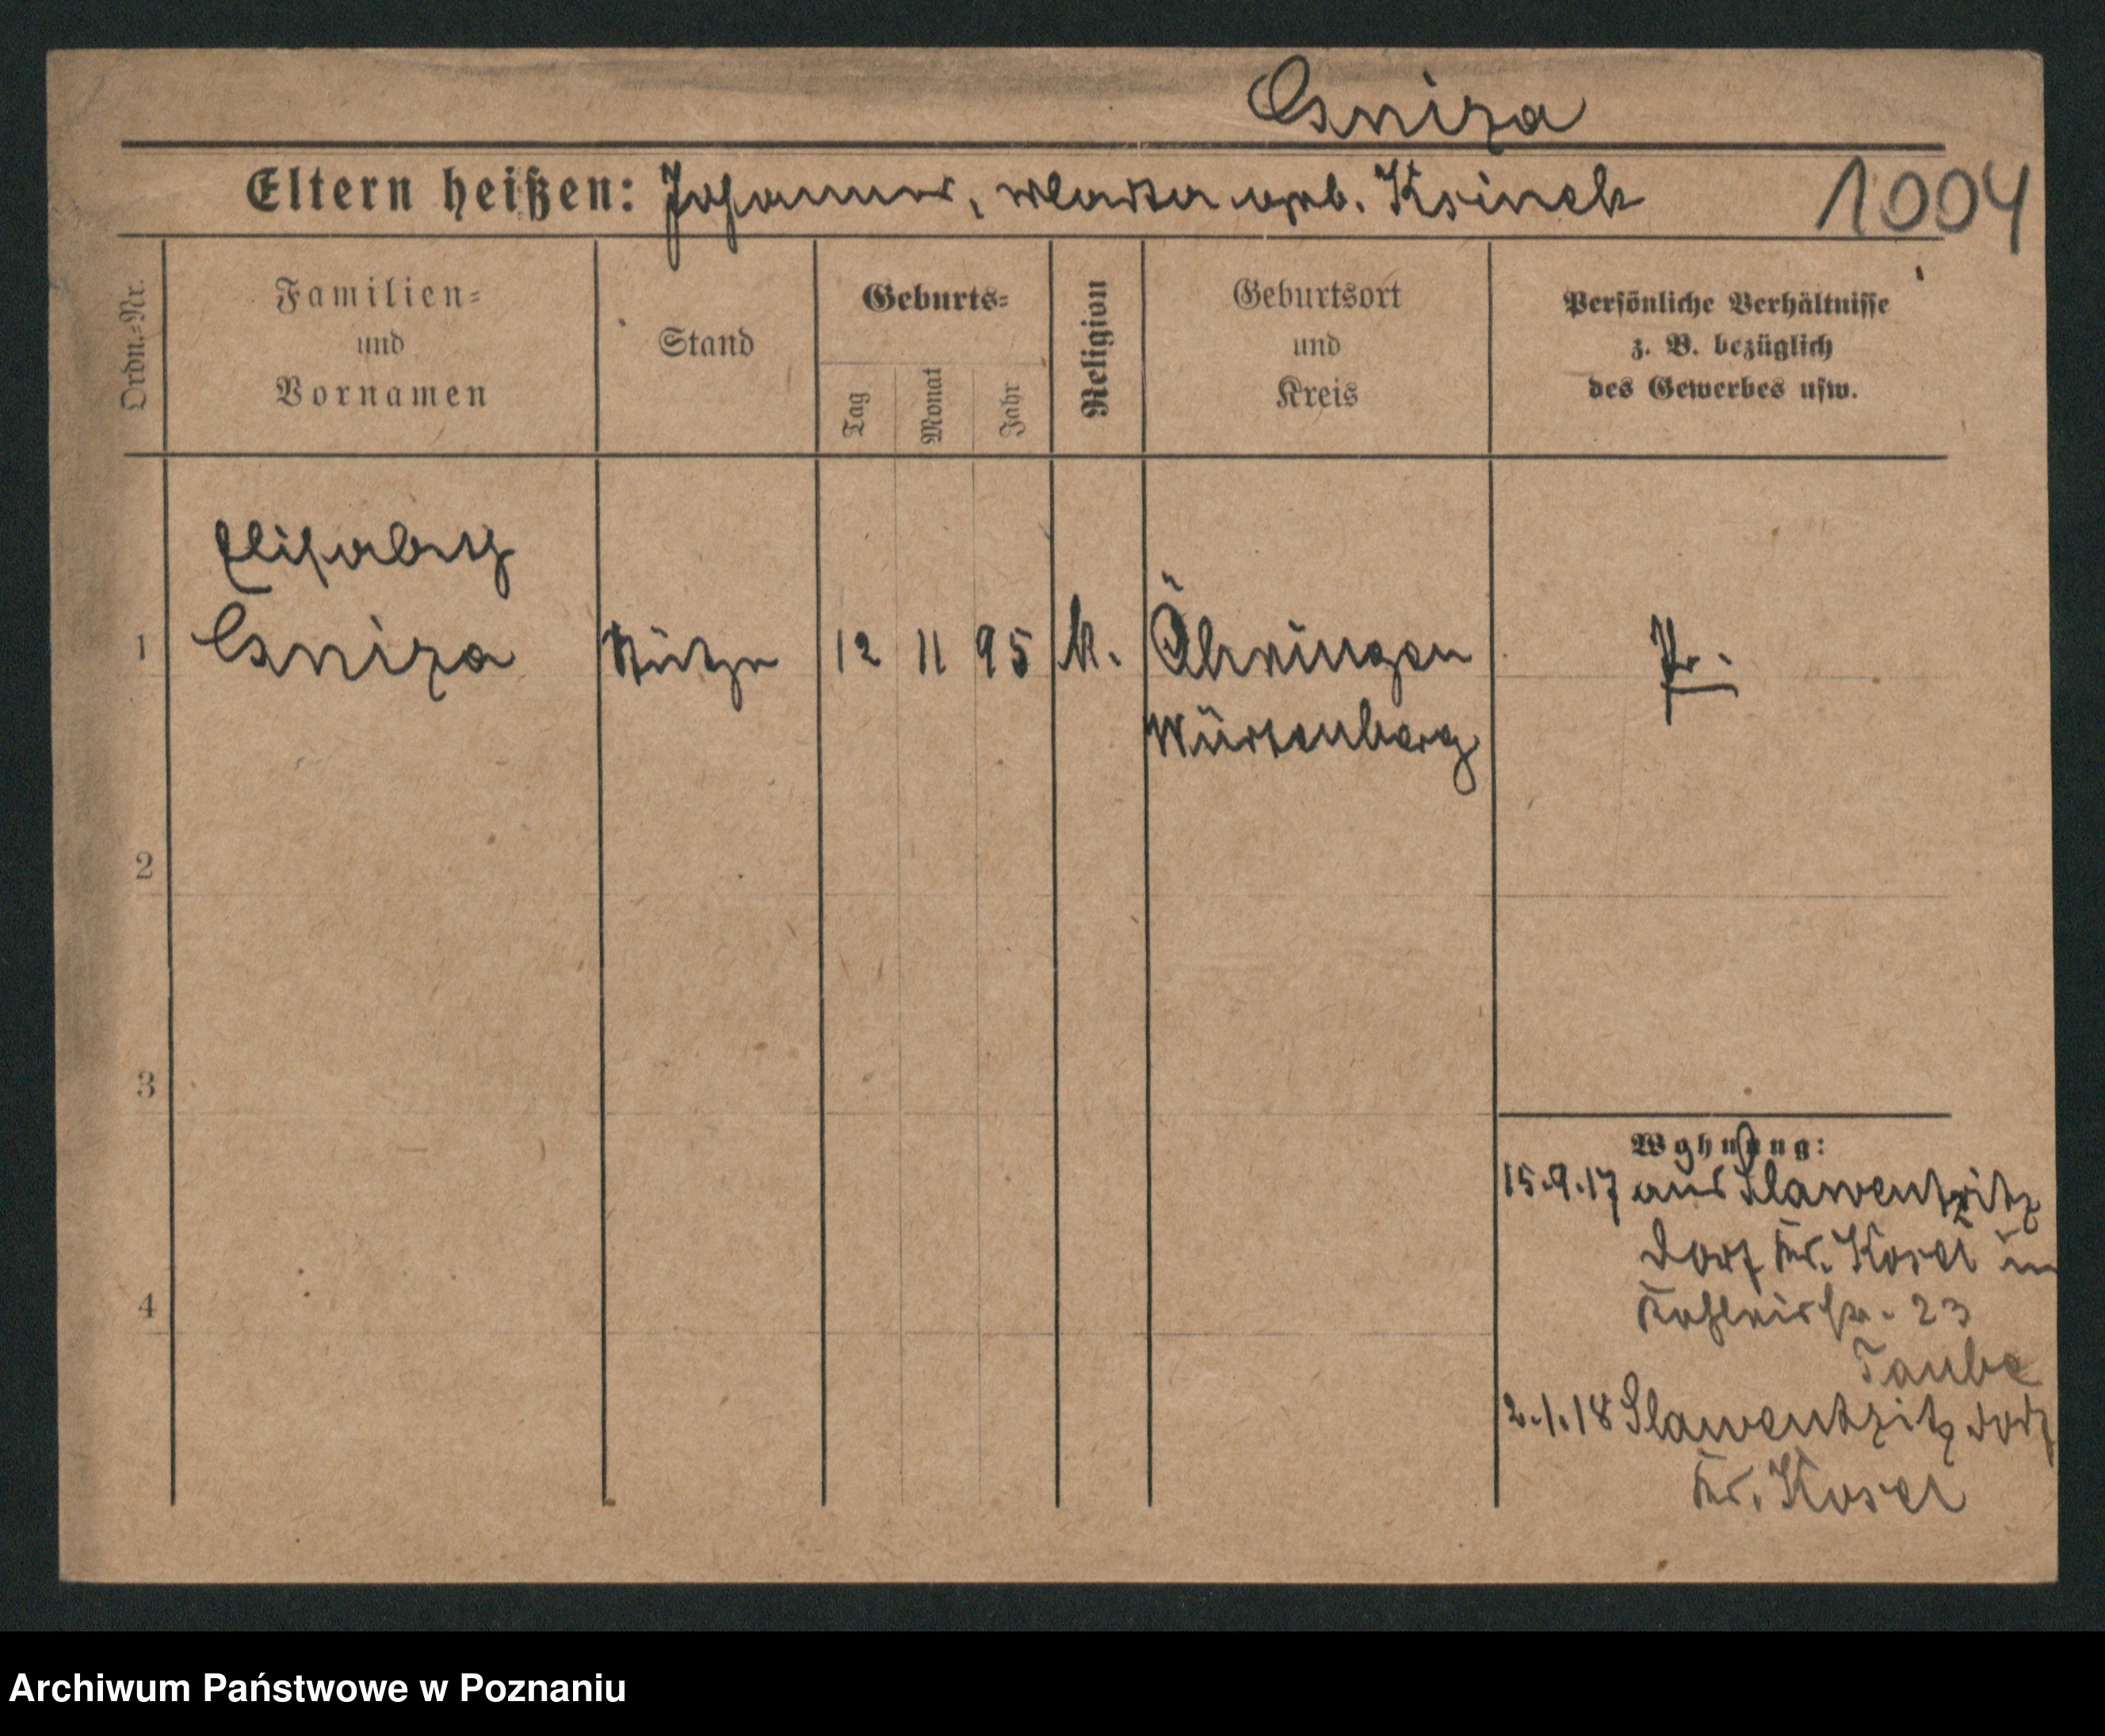 Csniza
Eltern heißen: Johannes, Marta geb. Ksinek
1004
Ordn.-Nr.
Familien-
und
Vornamen
Stand
Geburts-
Tag
Monat
Jahr
Religion
Geburtsort
und
Kreis
Persönliche Verhältnisse
z. B. bezüglich
des Gewerbes usw.
Elisabeth
1 Csniza Stütze 12 11 95 k. Öhringen Pr.
Würtenberg
2
3
4
Wohnung:
15.9.17 aus Slawentzitz
Dorf Kr. Kosel in
23
Taube
2.1.18 Slawentzitz Dorf
Kr. Kosel
Archiwum Państwowe w Poznaniu